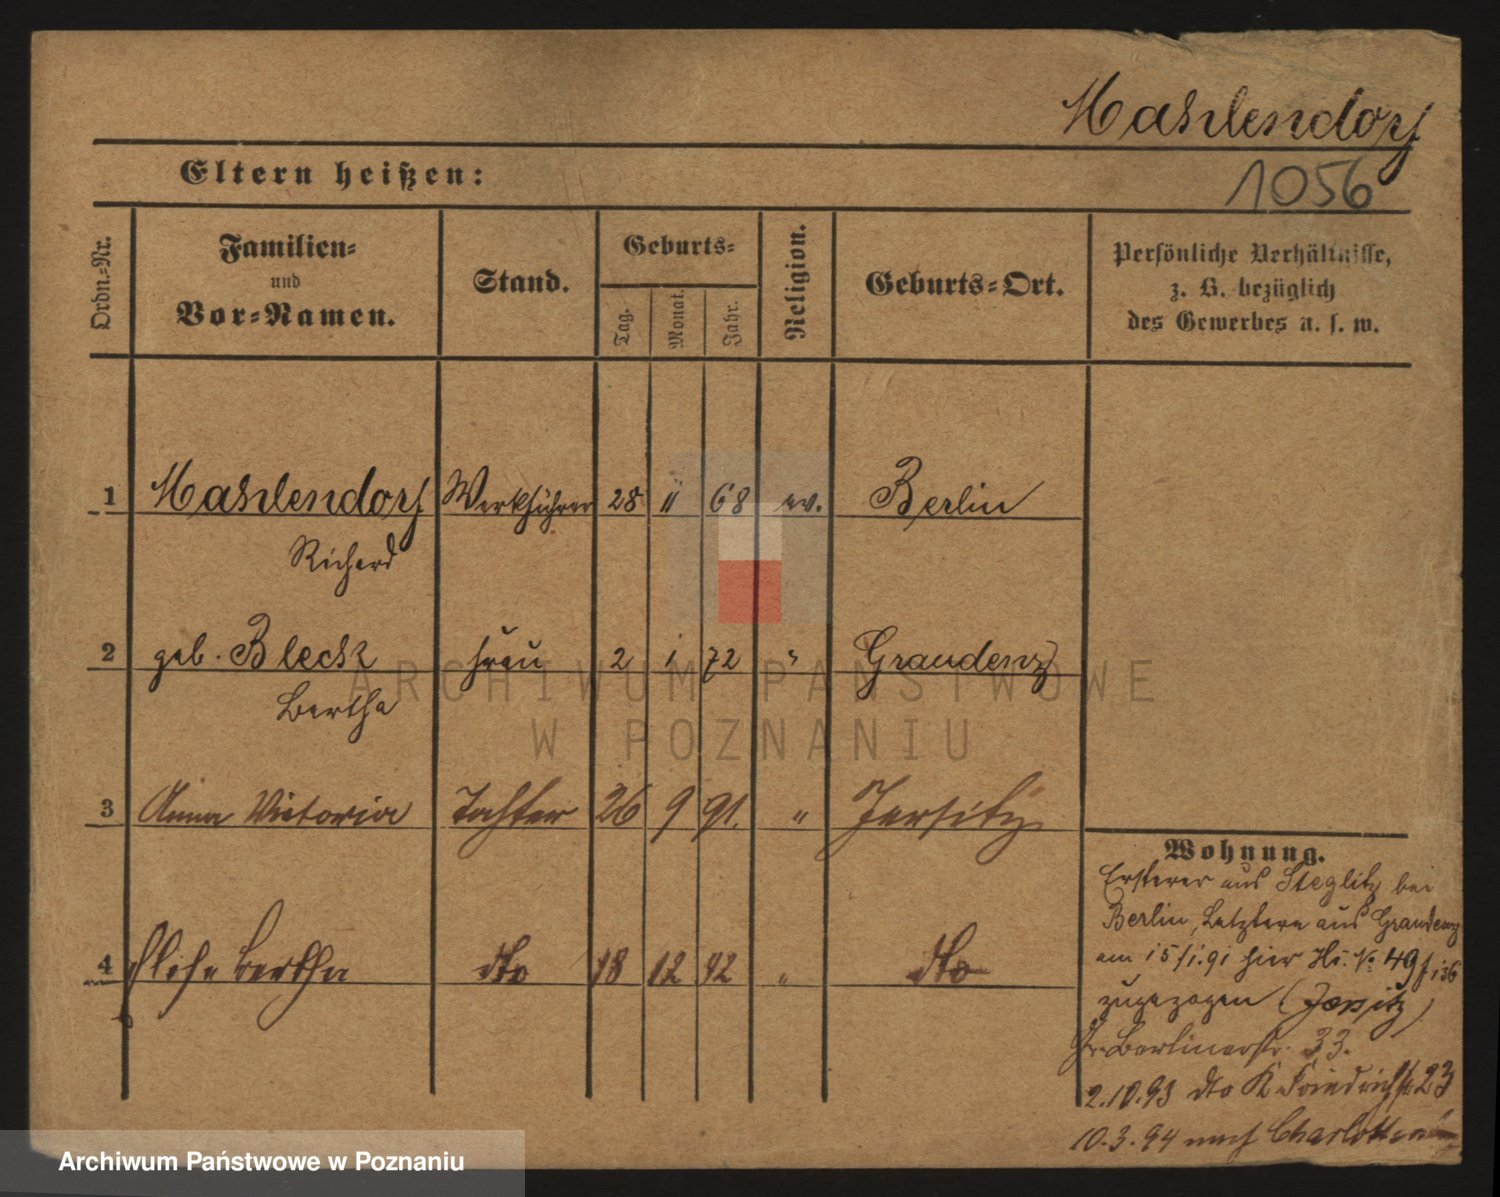 Mahlendorf
Eltern heißen:
1056
Ordn.-Nr.
Familien-
und
Vor-Namen.
Stand.
Geburts-
Tag.
Monat.
Jahr.
Religion.
Geburts-Ort.
Persönliche Verhältnisse,
z. B. bezüglich
des Gewerbes u. s. w.
1 Mahlendorf Werkführer 28 11 68 ev. Berlin
Richard
2 geb. Bleck Frau 2 1 72 " Graudenz
Bertha
3 Anna Victoria Tochter 26 9 91. " Jersitz
4 Bertha dto 18 12 92 " dto
Wohnung.
Ersterer aus Steglitz bei
Berlin, Letztere aus Graudenz
am 15/1.91 hier No 49
zugezogen (Jersitz)
Gr. Berlinerstr. 33.
2.10.93 dto K. Friedrichstr 23
10.3.94 nach
ARCHIWUM PAŃSTWOWE
W POZNANIU
Archiwum Państwowe w Poznaniu